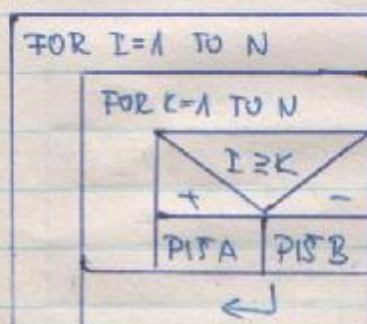 FOR I=1 TO N
FOR K=1 TO N
I≥K
+ −
PIŠ A PIŠ B